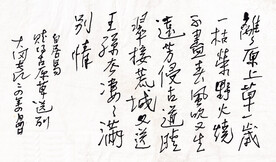 離々原上草一歲
一枯榮野火燒
不盡春風吹又生
遠芳侵古道晴
翠接荒城又送
王孫去萋々滿
別情
白居易
賦得古原草送別